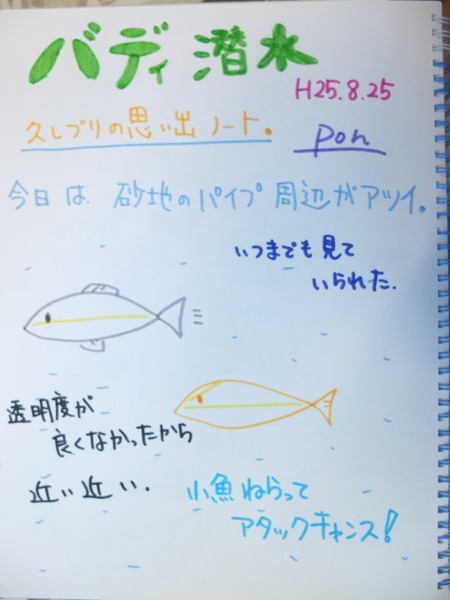 バディ潜水
H25.8.25
久しブリの思い出ノート。
pon
今日は砂地のパイプ周辺がアツイ。
いつまでも見て
いられた.
透明度が
良くなかったから
近い近い.
小魚ねらって
アタックチャンス!